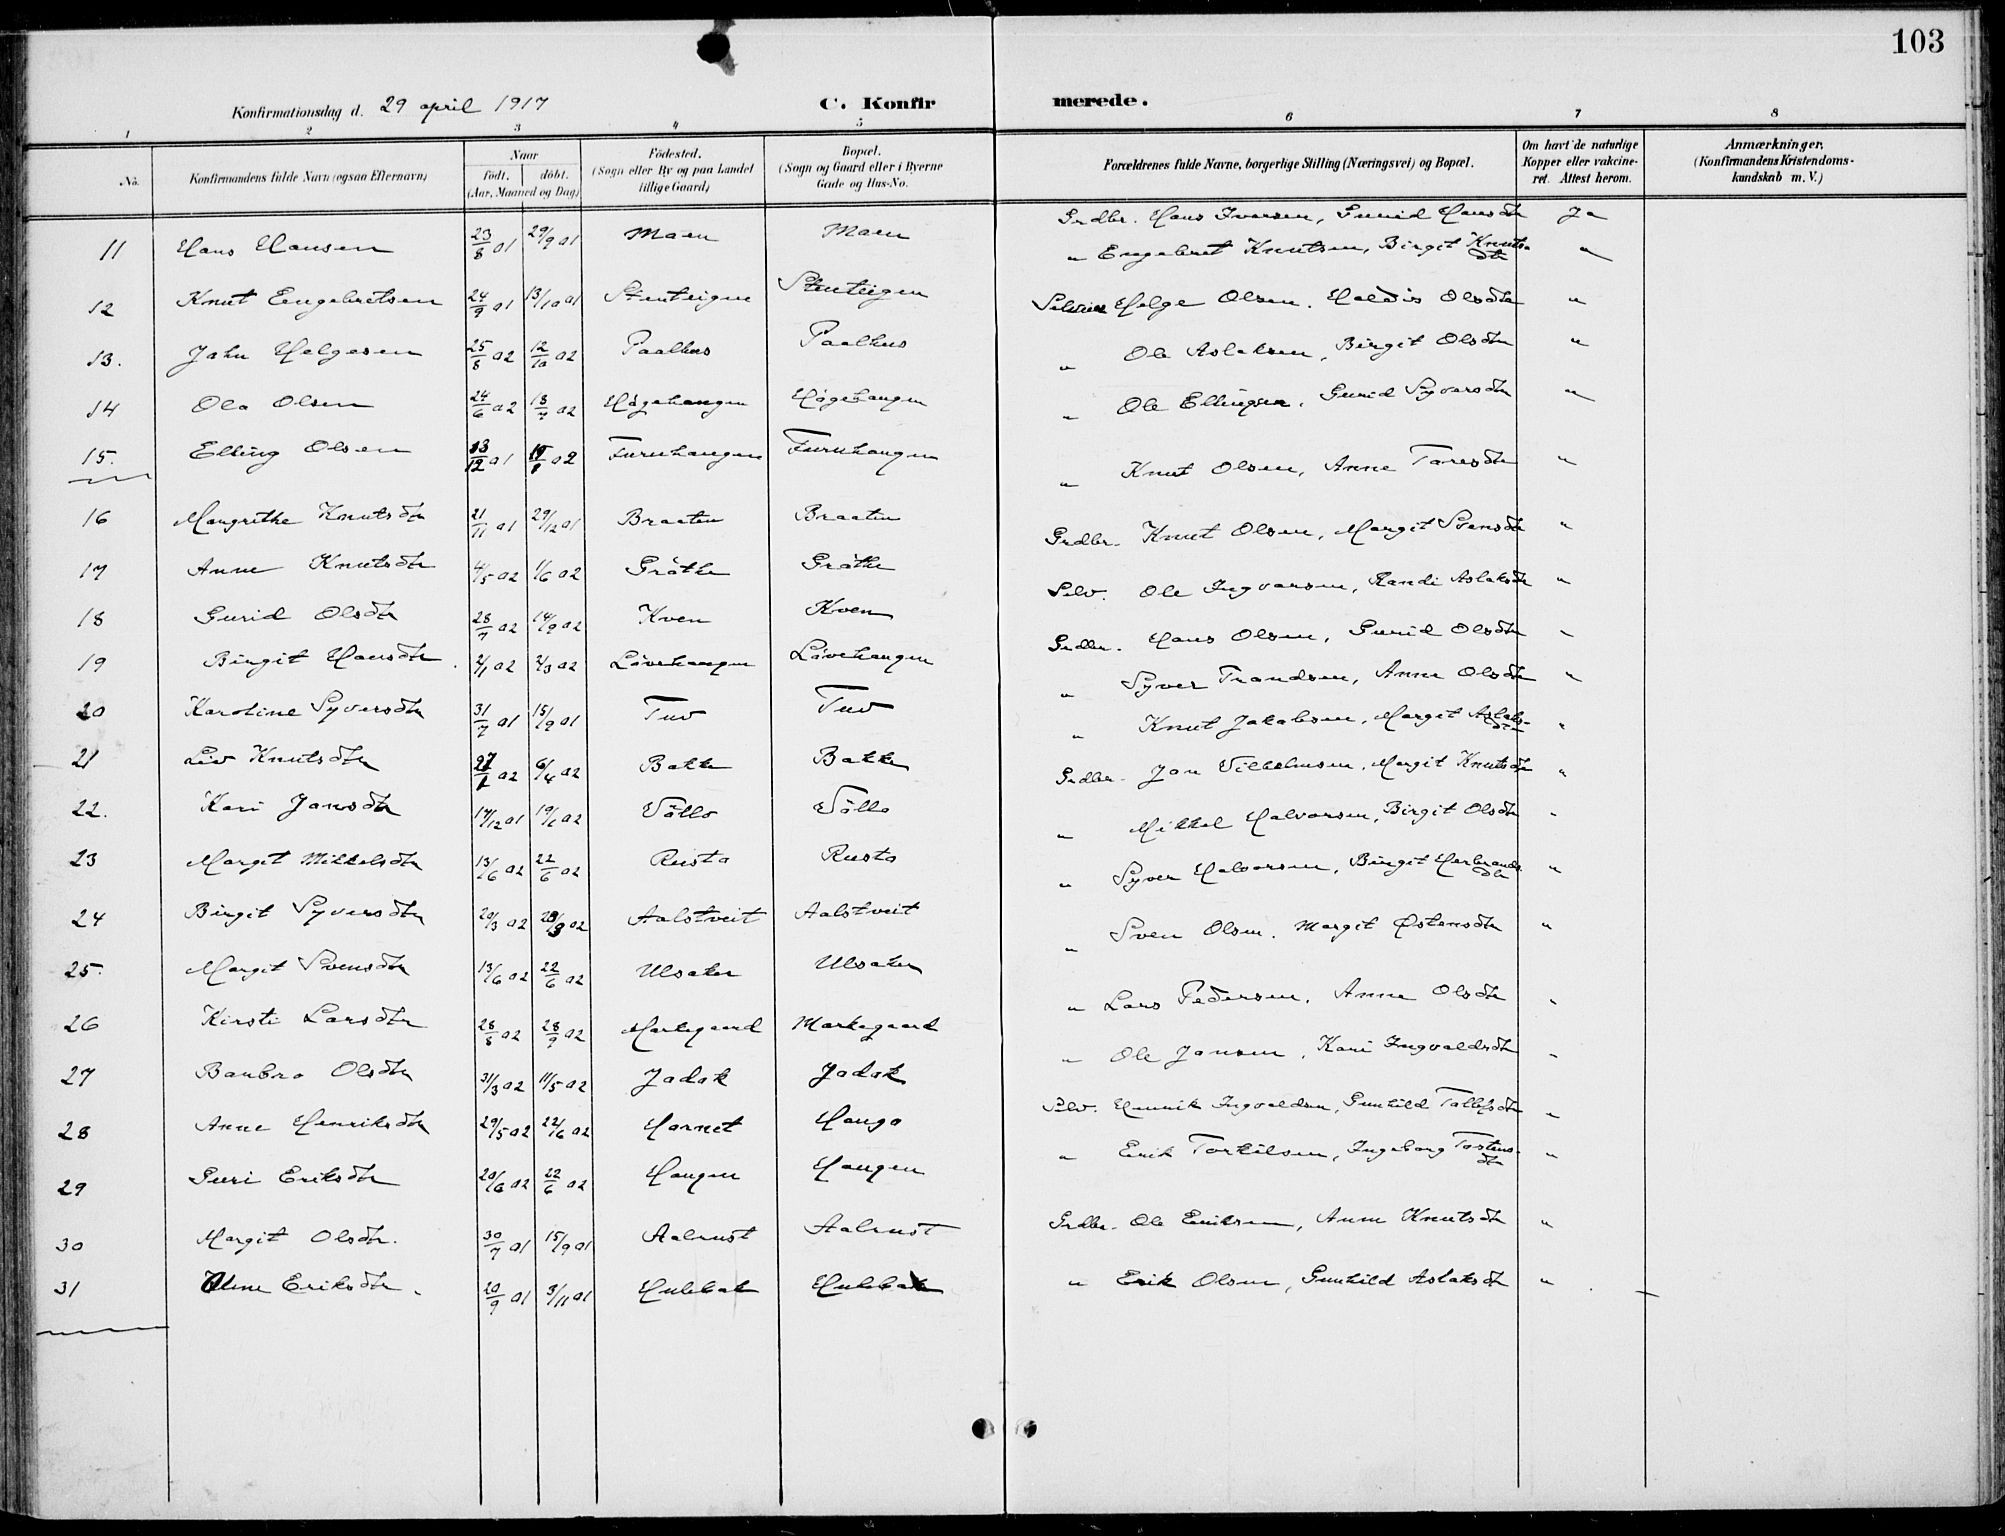 103
Konfirmationsdag d. 29 april 1917
C. Konfirmerede.
1 2 3 4 5 6 7 8
No. Konfirmandens fulde Navn (ogsaa Efternavn) Naar født. døbt. (Aar, Maaned og Dag) Fødested. (Sogn eller By og paa Landet tillige Gaard) Bopæl. (Sogn og Gaard eller i Byerne Gade og Hus-No. Forældrenes fulde Navne, borgerlige Stilling (Næringsvei) og Bopæl. Om havt de naturlige Kopper eller vakcineret. Attest herom. Anmærkninger. (Konfirmandens Kristendomskundskab m. V.)
11 Hans Hansen 23/8 01 29/9 01 Moen Moen Grdbr. Hans Iversen, Gunid Hansdtr Ja
12 Knut Engebretsen 24/9 01 13/10 01 Stenteigen Stenteigen " Engebret Knutsen, Birgit Knutsdtr "
13. John Helgesen 25/8 02 12/10 02 Paalhus Paalhus Selveier Helge Olsen. Haldis Olsdtr "
14 Ola Olsen 24/6 02 13/7 02 Høgehaugen Høgehaugen " Ole Aslaksen, Birgit Olsdtr "
15. Elling Olsen 13/12 01 02 Furuhaugen Furuhaugen " Ole Ellingsen. Gurid Syversdtr "
16 Margrethe Knutsdtr 21/11 01 29/12 01 Braaten Braaten " Knut Olsen, Anne Toresdtr "
17 Anne Knutsdtr 4/5 02 1/6 02 Grøthe Grøthe Grdbr. Knut Olsen, Margit Svensdtr "
18 Gurid Olsdtr 28/7 02 14/9 02 Kven Kven Selv. Ole Ingvarsen, Randi Aslaksdtr "
19 Birgit Hansdtr. 2/1 02 2/3 02 Løvehaugen Løvehaugen Grdbr. Hans Olsen, Gurid Olsdtr "
20 Karoline Syversdtr 31/7 01 15/9 01 Tuv Tuv " Syver Trondsen, Anne Olsdtr "
21 Liv Knutsdtr 02 6/4 02 Bakke Bakke " Knut Jakobsen, Margit Aslaksdtr "
22. Kari Jonsdtr 17/12 01 19/1 02 Vøllo Vøllo Grdbr. Jon Vilhelmsen, Margit Knutsdtr "
23 Margit Mikkelsdtr 13/6 02 22/6 02 Rusto Rusto " Mikkel Halvorsen, Birgit Olsdtr "
24 Birgit Syversdtr 20/3 02 02 Aalstveit Aalstveit " Syver Halvorsen, Birgit Herbrandsdtr "
25. Margit Svensdtr 13/6 02 22/6 02 Ulsaker Ulsaker " Sven Olsen. Margit Østensdtr "
26 Kirsti Larsdtr 28/8 02 28/9 02 Markegaard Markegaard " Lars Pedersen. Anne Olsdtr "
27 Barbro Olsdtr 31/3 02 11/5 02 Jadok Jadok " Ole Jonsen, Kari Ingvaldsdtr "
28 Anne Henriksdtr 29/5 02 22/6 02 Hornet Haugo Selv. Henrik Ingvaldsen, Gunhild Tollefsdtr "
29 Guri Eriksdtr 20/6 02 22/6 02 Haugen Haugen " Erik Torkilsen, Ingeborg Tostensdtr "
30 Margit Olsdtr. 30/7 01 15/9 01 Aalrust Aalrust Grdbr. Ole Eriksen, Anne Knutsdtr "
31 Eriksdtr. 20/9 01 3/11 01 Hulbak Hulbak " Erik Olsen, Gunhild Aslaksdtr "